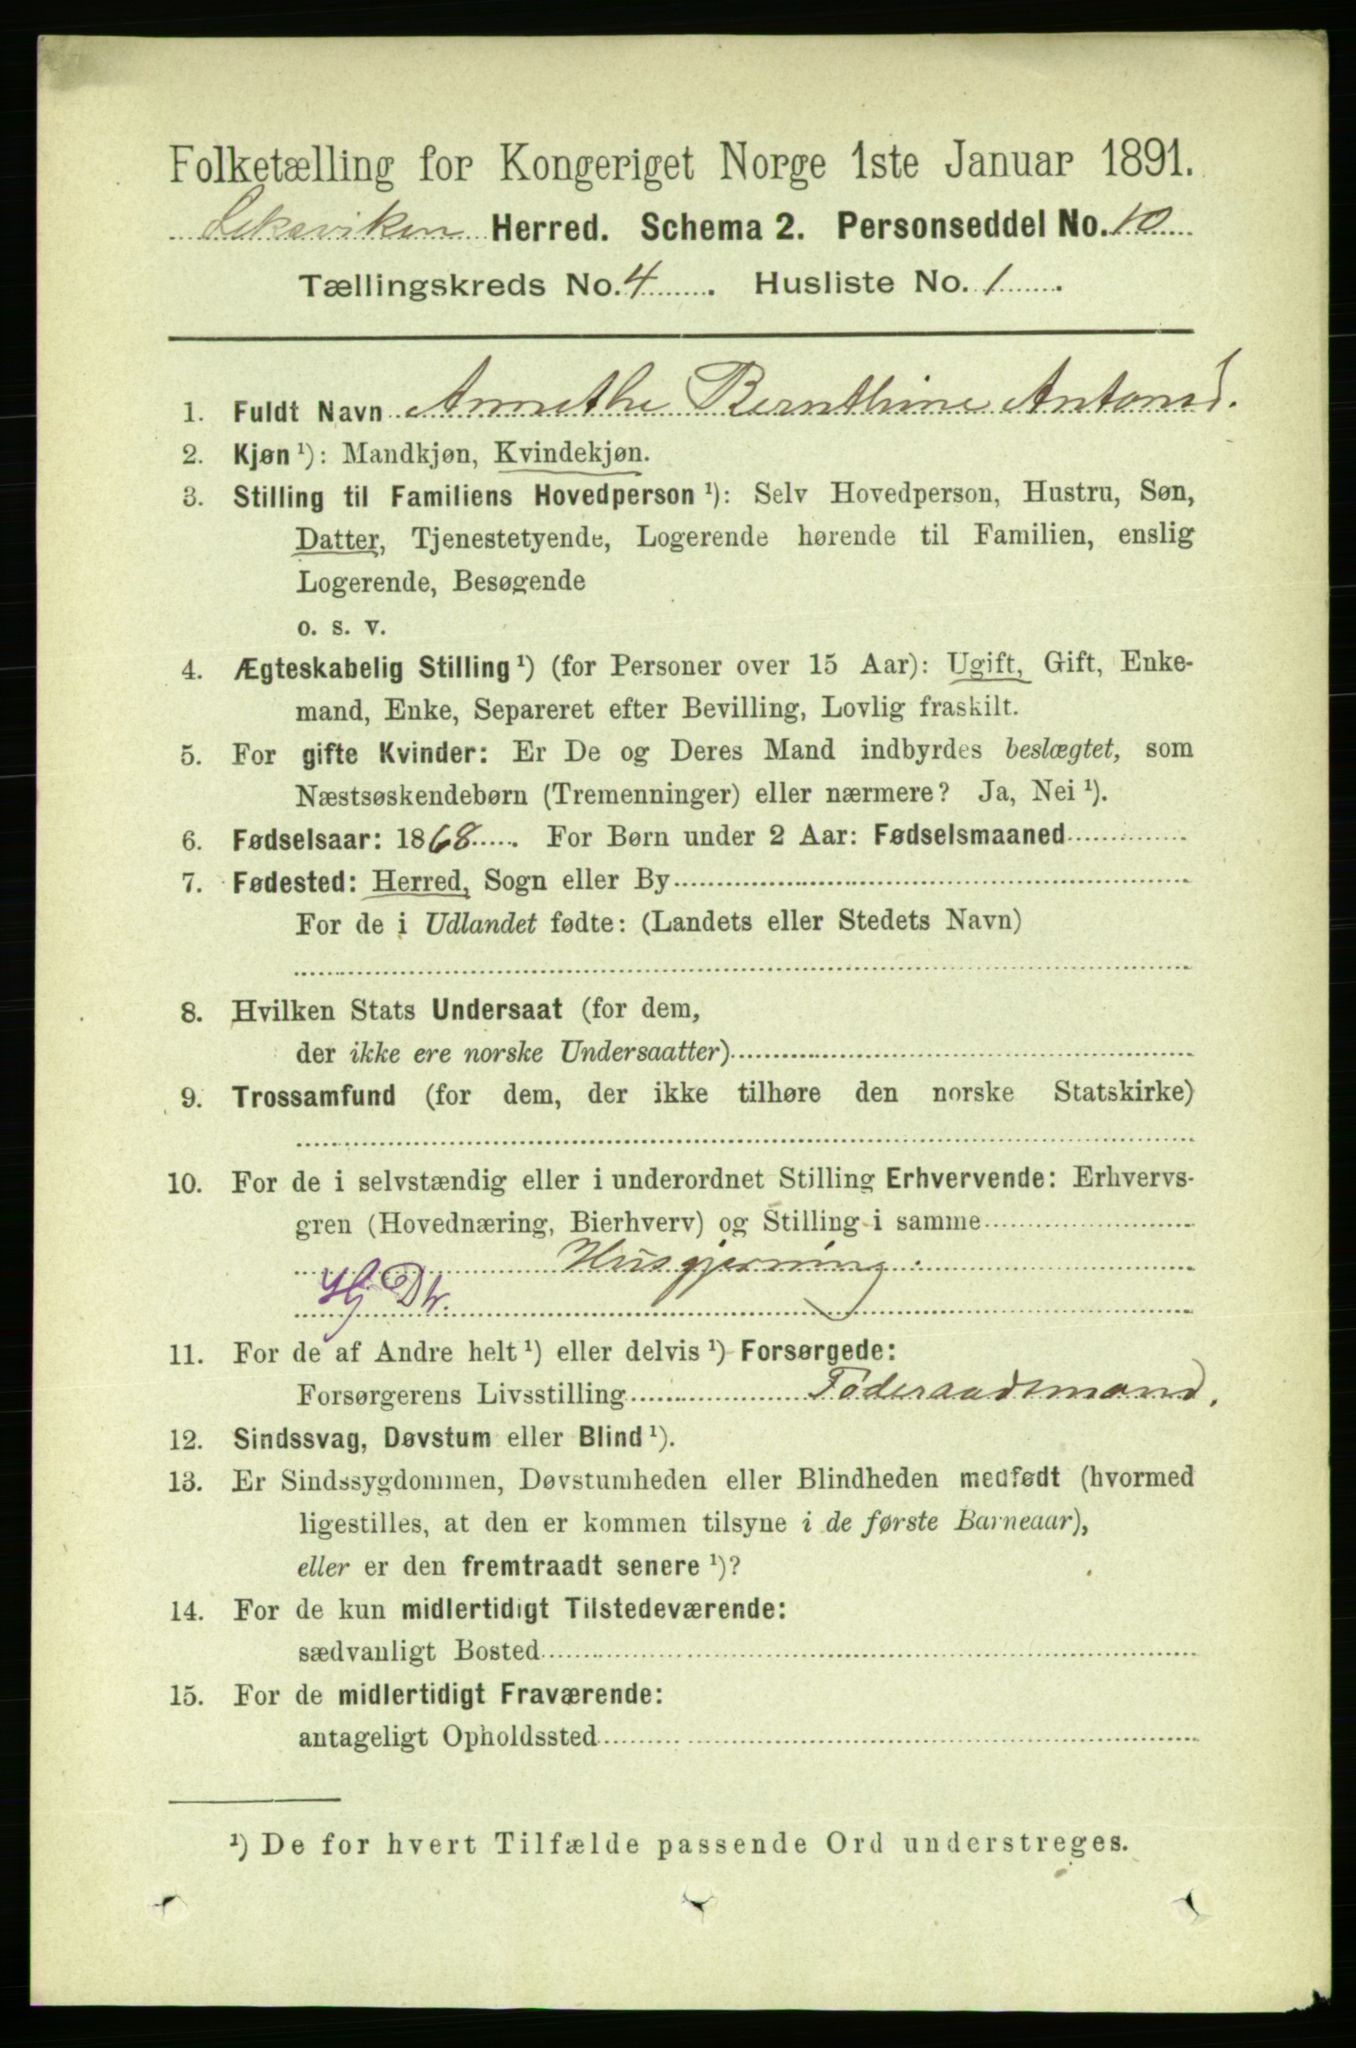 Folketælling for Kongeriget Norge 1ste Januar 1891.
Leksviken Herred. Schema 2. Personseddel No. 10
Tællingskreds No. 4. Husliste No. 1.
1. Fuldt Navn Annethe Bernthine Antonsd.
2. Kjøn ¹): Mandkjøn, Kvindekjøn.
3. Stilling til Familiens Hovedperson ¹): Selv Hovedperson, Hustru, Søn,
Datter, Tjenestetyende, Logerende hørende til Familien, enslig
Logerende, Besøgende
o. s. v.
4. Ægteskabelig Stilling ¹) (for Personer over 15 Aar): Ugift, Gift, Enke-
mand, Enke, Separeret efter Bevilling, Lovlig fraskilt.
5. For gifte Kvinder: Er De og Deres Mand indbyrdes beslægtet, som
Næstsøskendebørn (Tremenninger) eller nærmere? Ja, Nei ¹).
6. Fødselsaar: 1868. For Børn under 2 Aar: Fødselsmaaned
7. Fødested: Herred, Sogn eller By
For de i Udlandet fødte: (Landets eller Stedets Navn)
8. Hvilken Stats Undersaat (for dem,
der ikke ere norske Undersaatter)
9. Trossamfund (for dem, der ikke tilhøre den norske Statskirke)
10. For de i selvstændig eller i underordnet Stilling Erhvervende: Erhvervs-
gren (Hovednæring, Bierhverv) og Stilling i samme
Husgjerning.
Hj Dtr.
11. For de af Andre helt ¹) eller delvis ¹) Forsørgede:
Forsørgerens Livsstilling Föderaadsmand.
12. Sindssvag, Døvstum eller Blind ¹).
13. Er Sindssygdommen, Døvstumheden eller Blindheden medfødt (hvormed
ligestilles, at den er kommen tilsyne i de første Barneaar),
eller er den fremtraadt senere ¹)?
14. For de kun midlertidigt Tilstedeværende:
sædvanligt Bosted
15. For de midlertidigt Fraværende:
antageligt Opholdssted
¹) De for hvert Tilfælde passende Ord understreges.